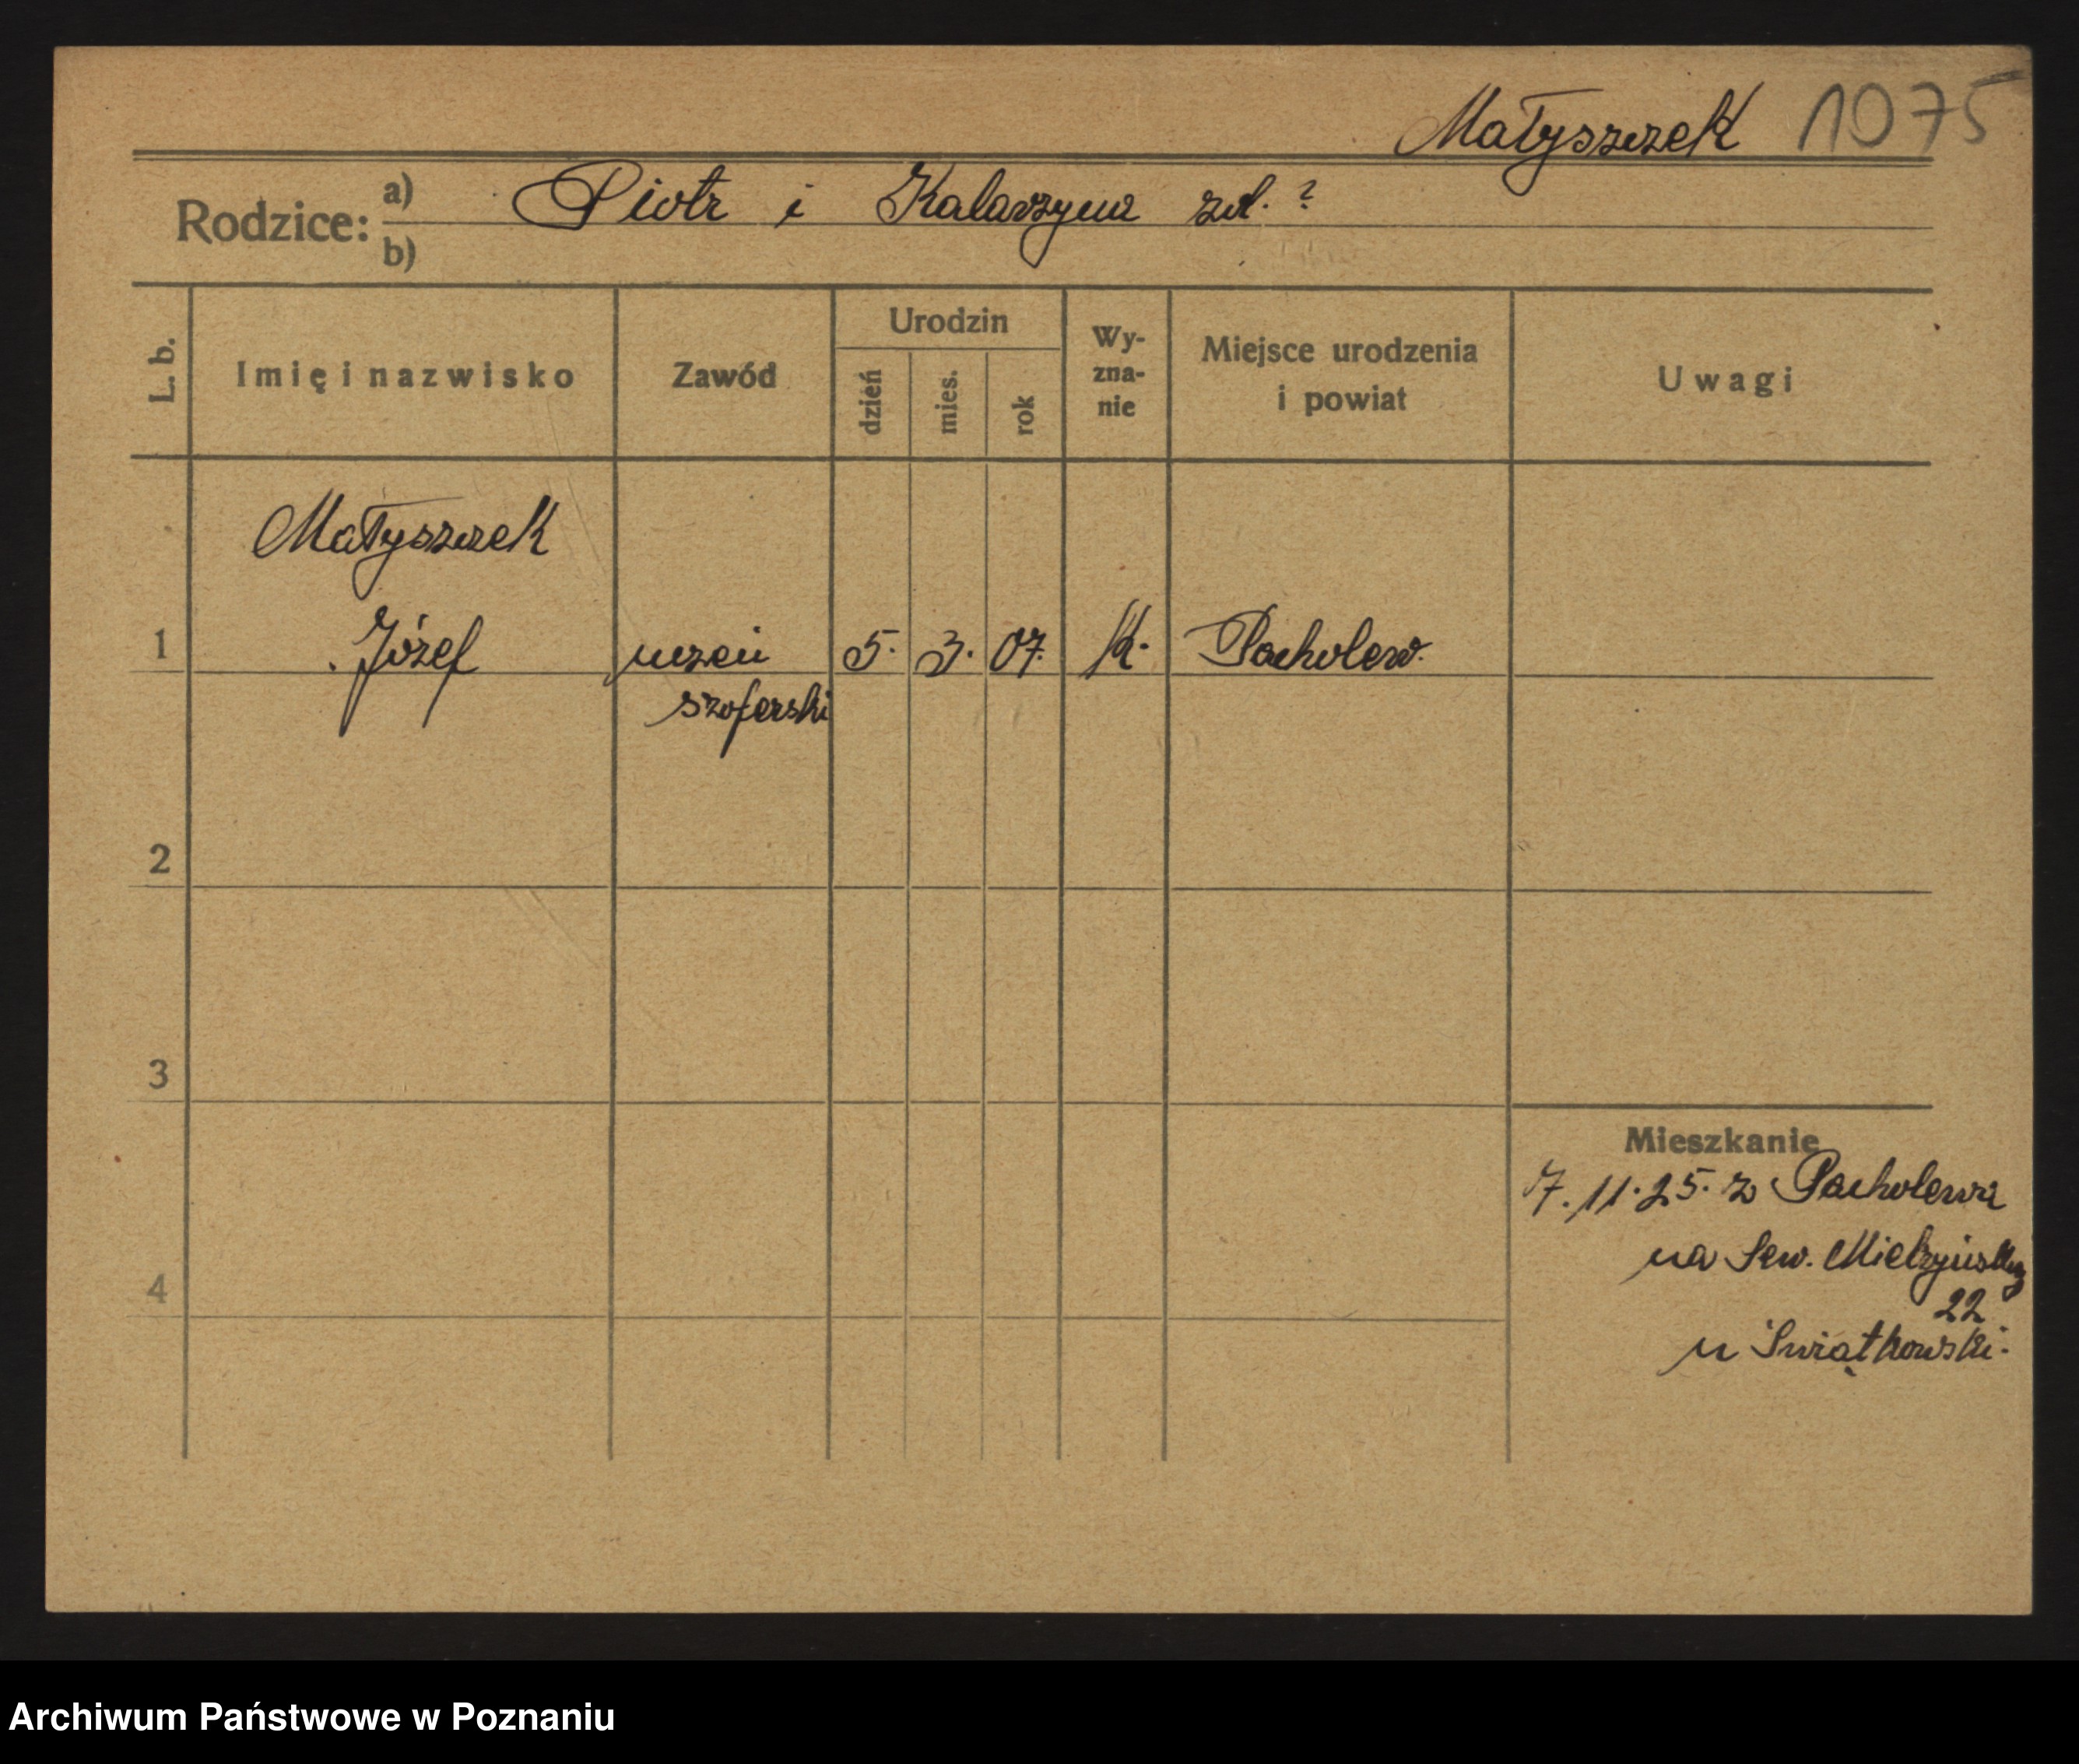 Małyszczek 1075
Rodzice: a) Piotr i Katarzyna zd. ?
b)
L. b. Imię i nazwisko Zawód Urodzin dzień mies. rok Wy-zna-nie Miejsce urodzenia i powiat Uwagi
Małyszczek
1 Józef uczeń 5. 3. 07. K. Pacholew.
szoferski
2
3
Mieszkanie
7.11.25. z Pacholewa
na Sew. Mielżyńskiego
22
4
u Świątkowski.
Archiwum Państwowe w Poznaniu